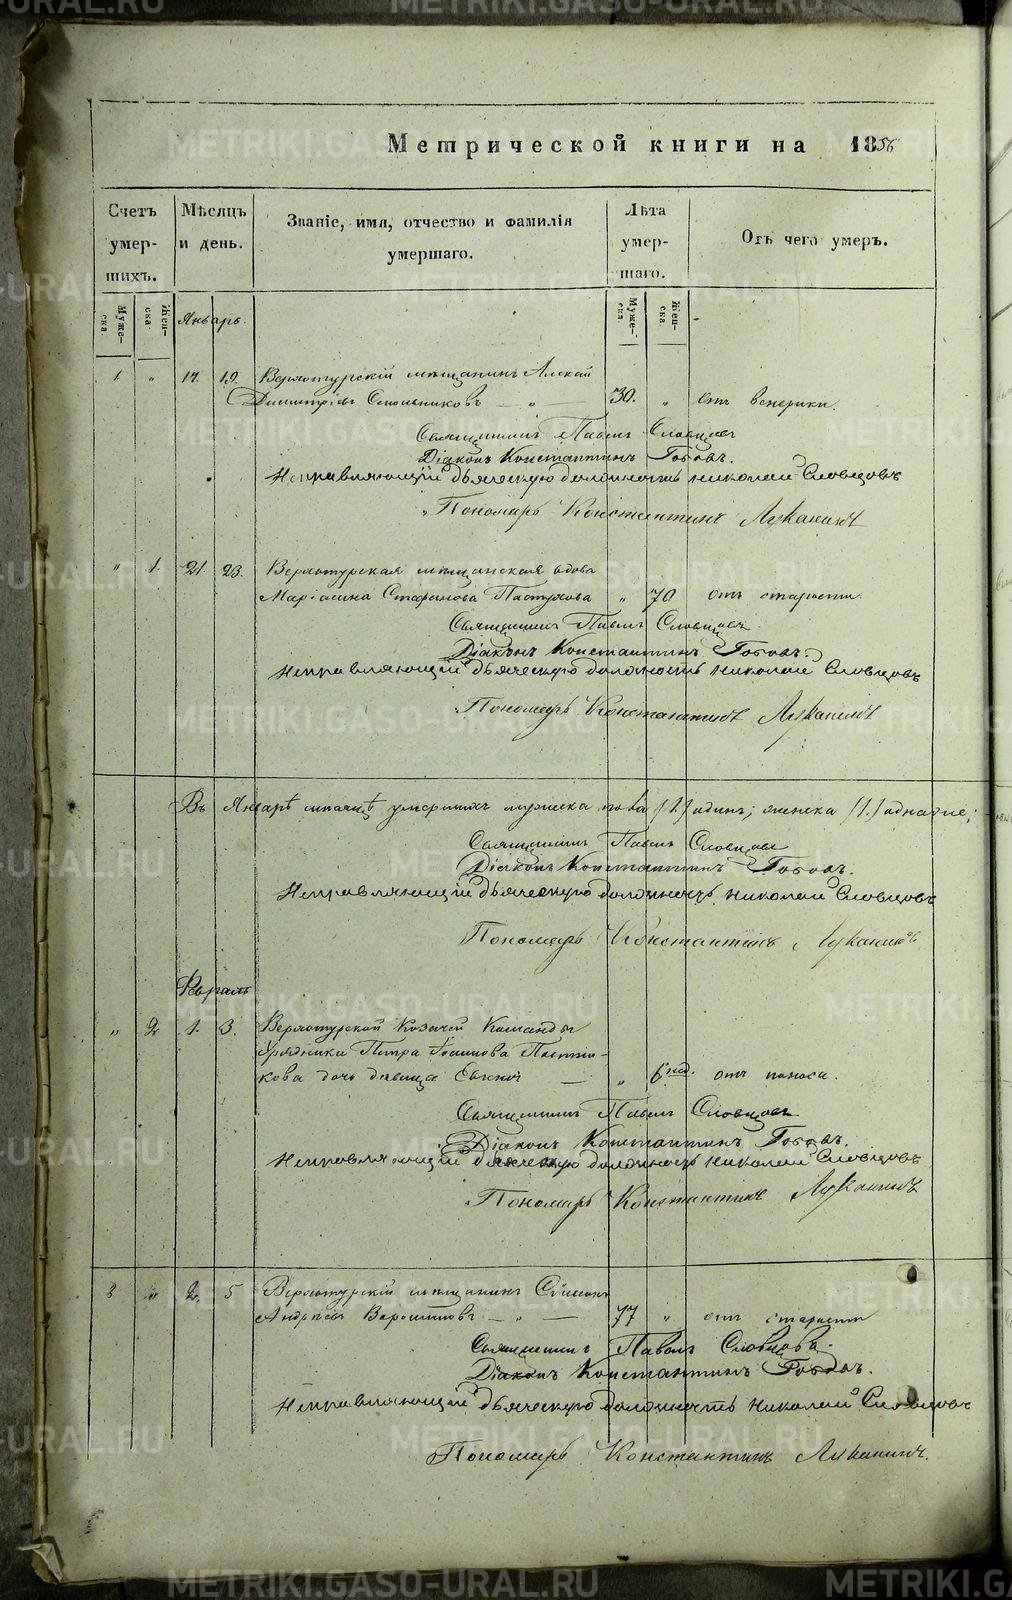 Метрической книги на 1856
Счетъ умершихъ.
Мѣсяцъ и день.
Званіе, имя, отчество и фамилія умершаго.
Лѣта умершаго.
Отъ чего умеръ.
Мужеска.
Женска.
Мужеска.
Женска.
Январь.
1 " 17. 19. Верхотурскій мѣщанинъ Алексѣй
Димитріевъ 30. " отъ венерики.
Священникъ Павелъ Словцовъ
Діаконъ Константинъ Гобовъ.
Исправляющій дьяческую должность Николай Словцовъ
Пономарь Константинъ Луканинъ
" 1. 21. 23. Верхотурская мѣщанская вдова
Маріамна Стефанова Пастухова " 70 отъ старости.
Священникъ Павелъ Словцовъ.
Діаконъ Константинъ Гобовъ.
Исправляющій дьяческую должность Николай Словцовъ
Пономарь Константинъ Луканинъ
Въ Январѣ мѣсяцѣ умершихъ мужеска пола (1.) одинъ; женска (1.) одна;
Священникъ Павелъ Словцовъ
Діаконъ Константинъ Гобовъ.
Исправляющій дьяческую должность Николай Словцовъ
Пономарь Константинъ Луканинъ
Февраль
" 2 1. 3. Верхотурской Козачей Команды
Урядника Петра Іоаннова
дочь дѣвица " 6 нед. отъ поноса.
Священникъ Павелъ Словцовъ
Діаконъ Константинъ Гобовъ.
Исправляющій дьяческую должность Николай Словцовъ
Пономарь Константинъ Луканинъ
2 " 2. 5 Верхотурскій мѣщанинъ Симеонъ
Андреевъ 77 " отъ старости
Священникъ Павелъ Словцовъ.
Діаконъ Константинъ Гобовъ.
Исправляющій дьяческую должность Николай Словцовъ
Пономарь Константинъ Луканинъ.
METRIKI.GASO-URAL.RU